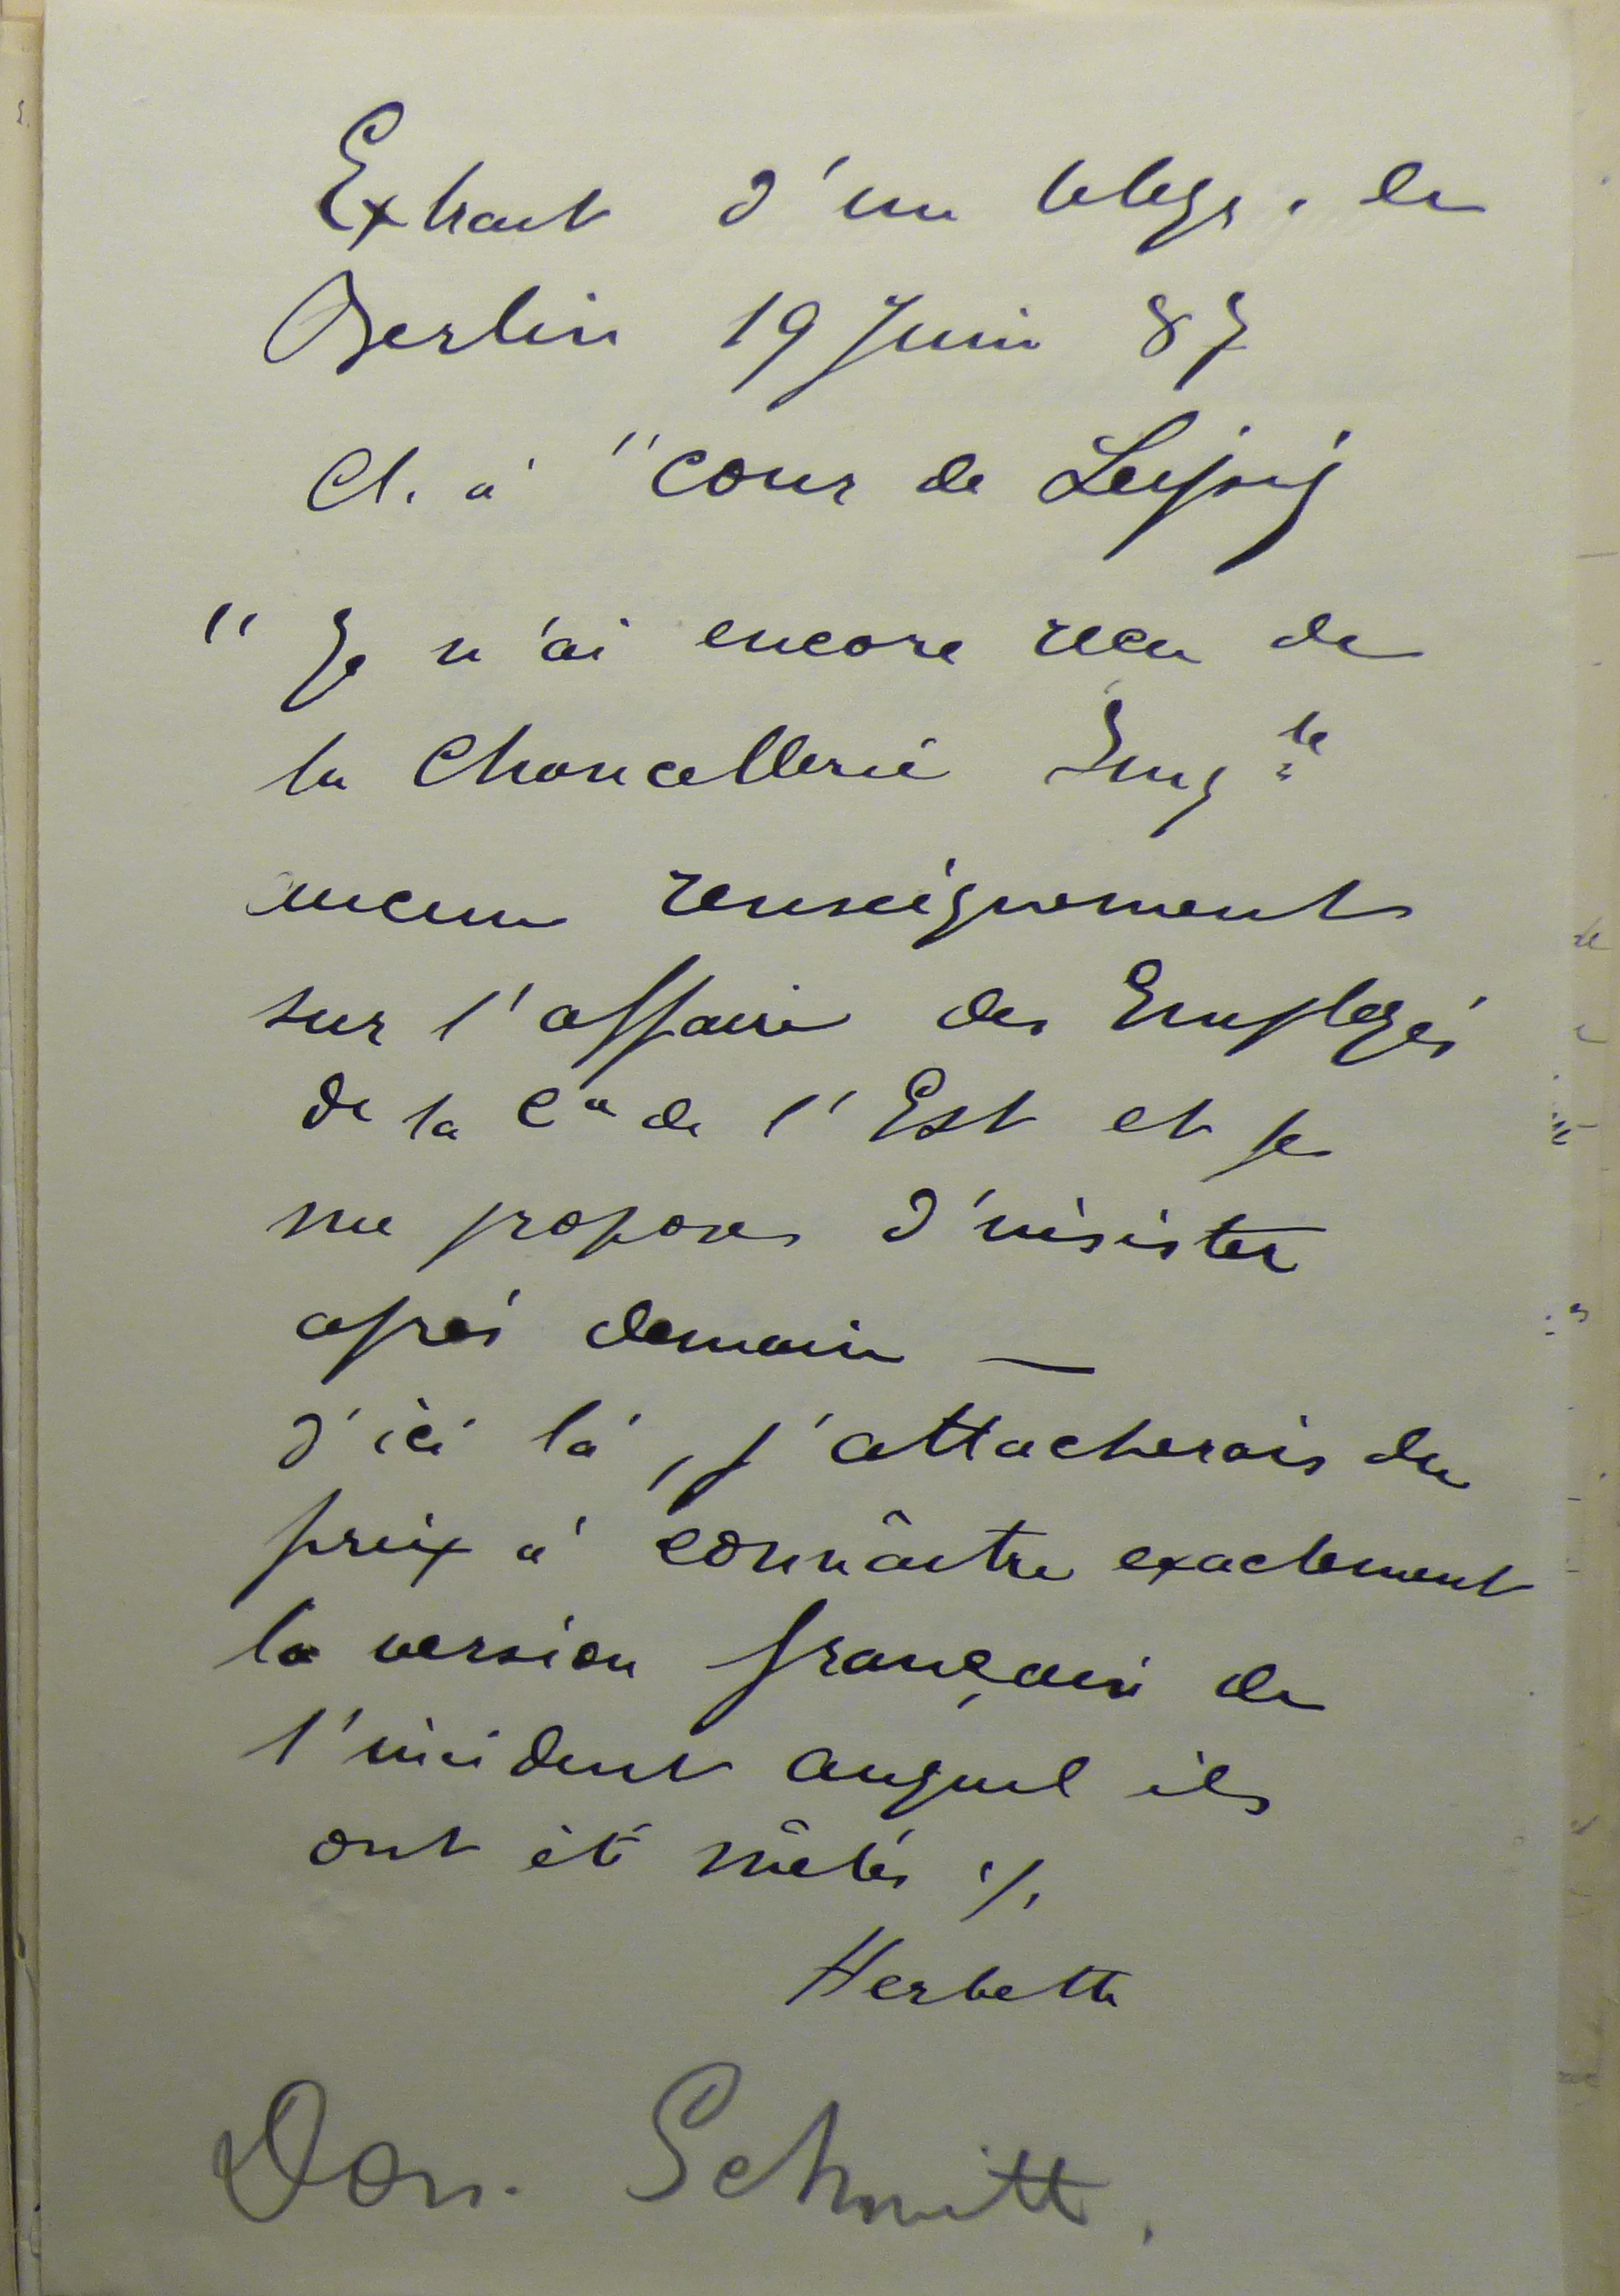 Extrait d'un télégr. de
Berlin 19 Juin 87
Cl. à "Cour de Leipzig
"Je n'ai encore reçu de
la Chancellerie Imp^le
aucun renseignement
sur l'affaire des Employés
de la C^ie de l'Est et je
me propose d'insister
après demain —
d'ici là, j'attacherais du
prix à connaître exactement
la version française de
l'incident auquel ils
ont été mêlés ./.
Herbette
Dos. Schmitt.